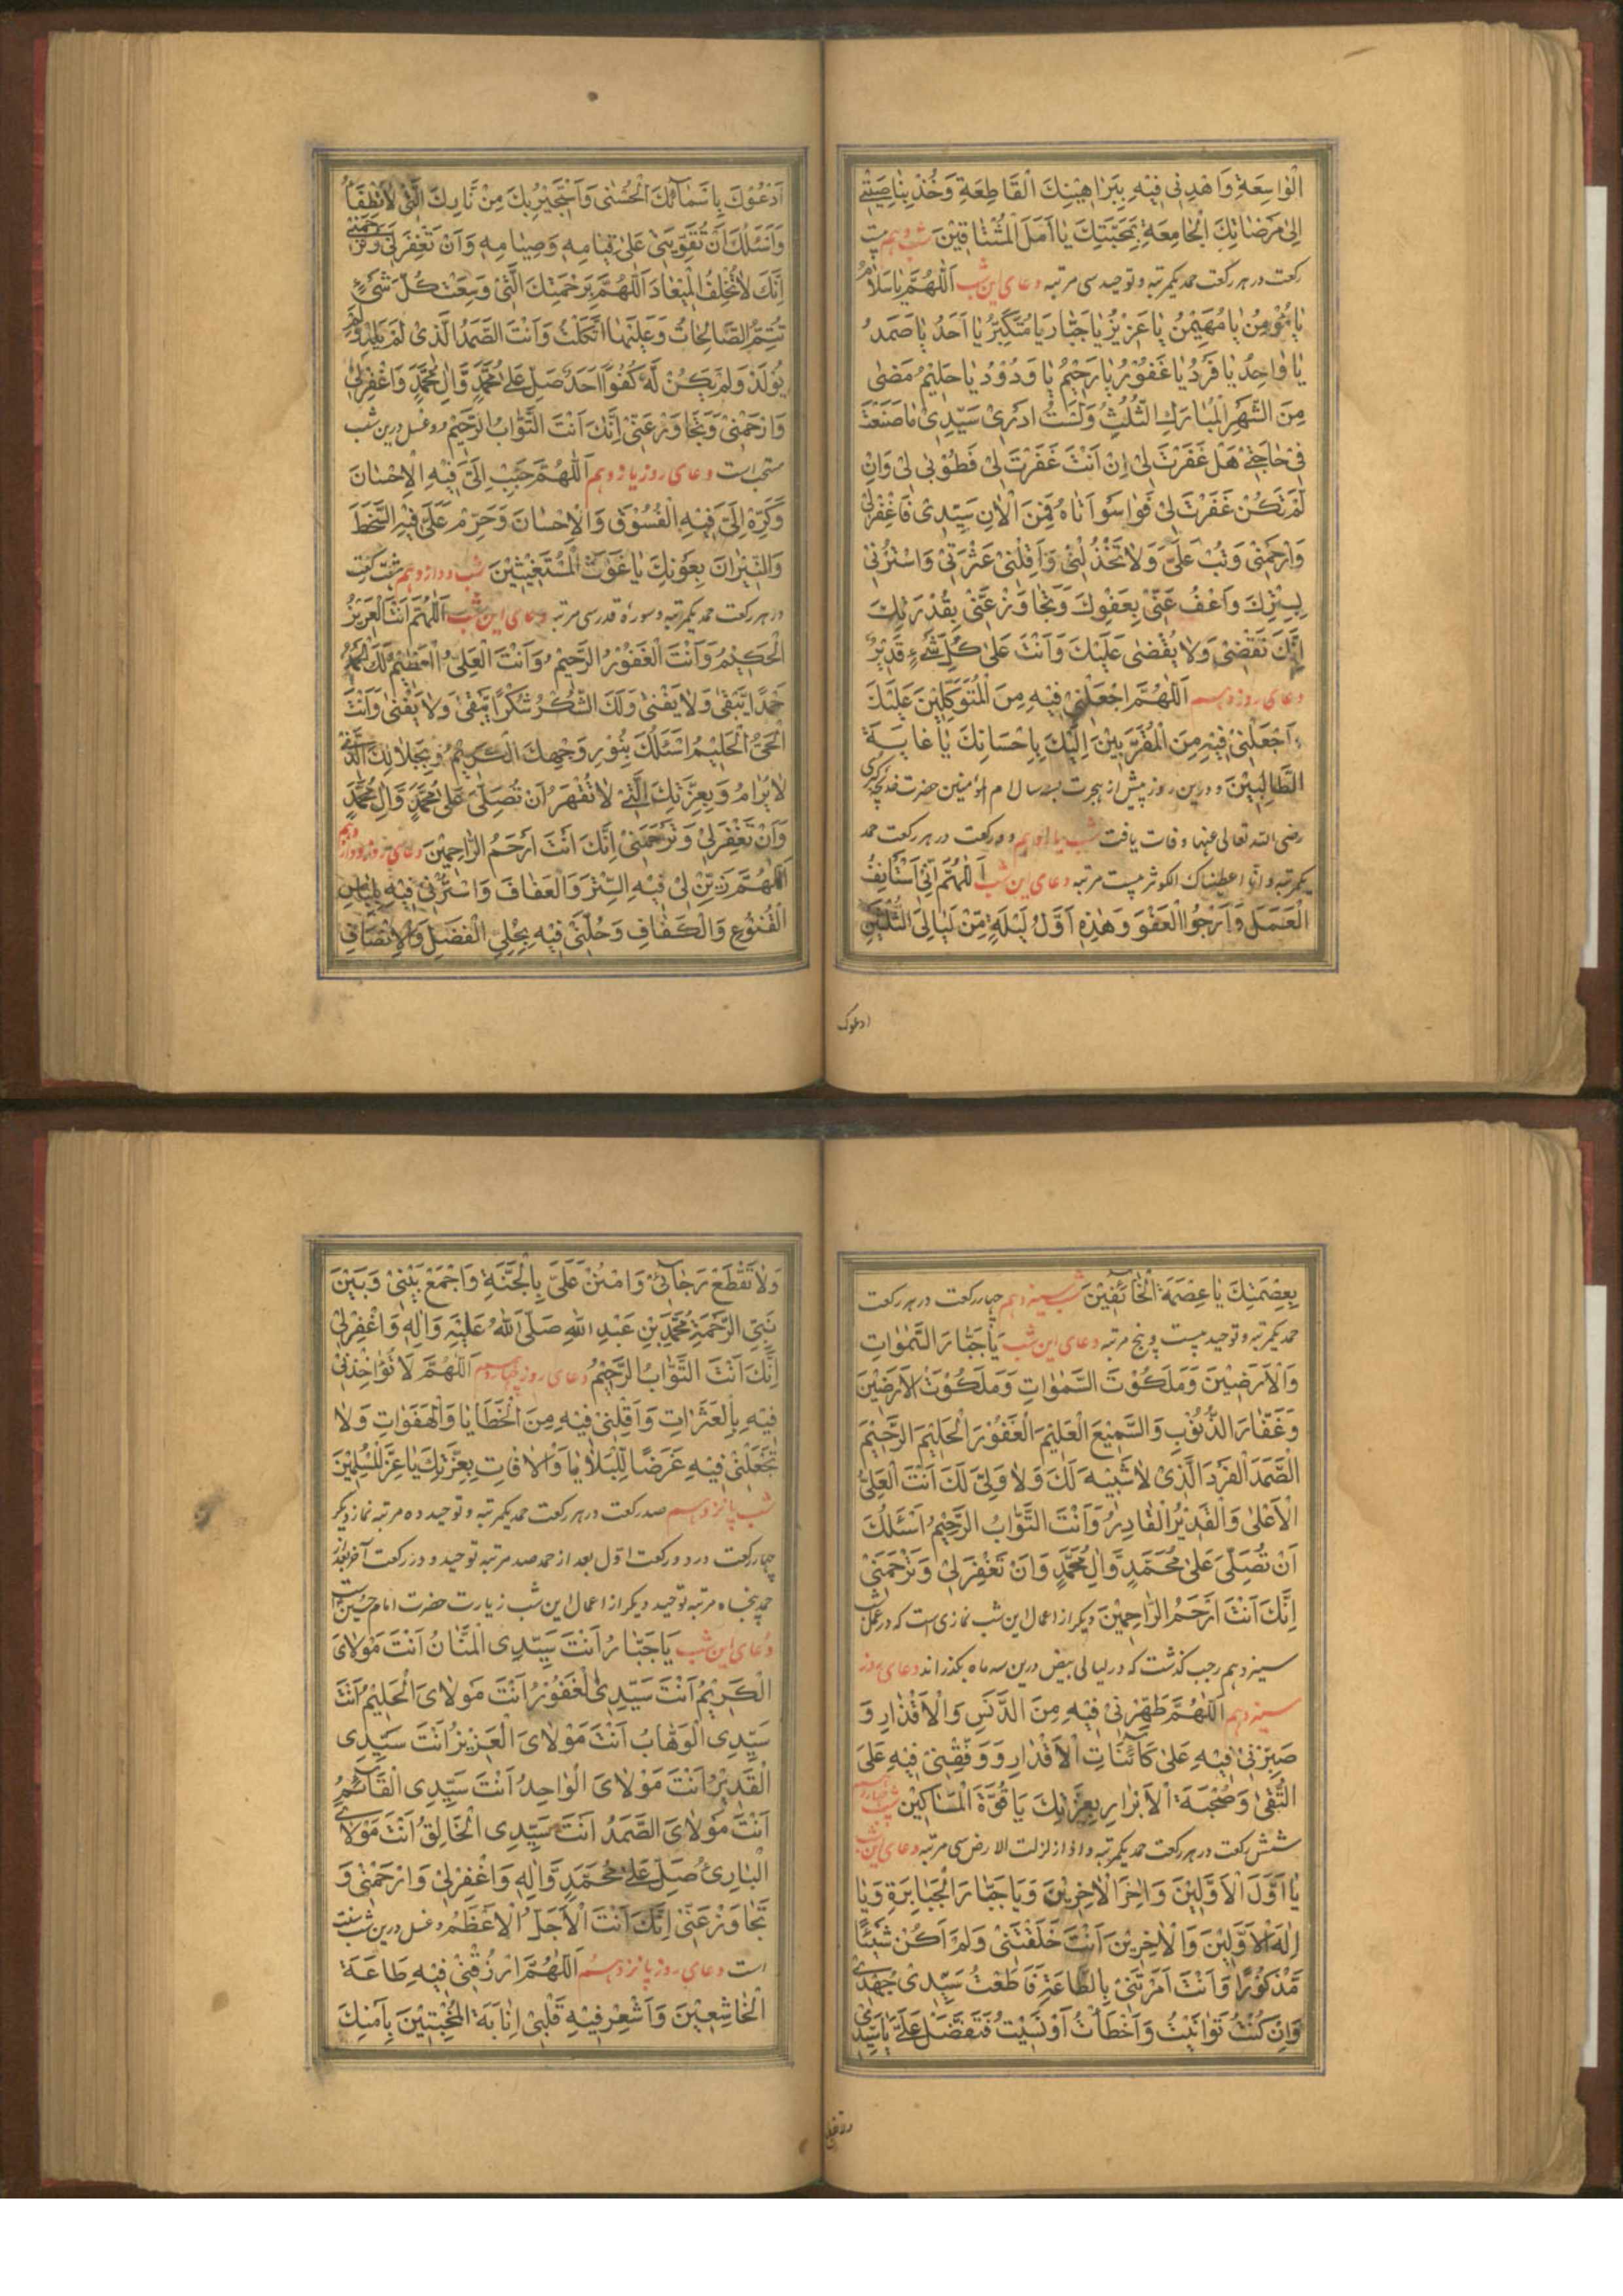 الْوٰاسِعَةِ وَاهْدِنِی فِیْهِ بِبَرٰاهِیْنِكَ الْقَاطِعَةِ وَخُذْ بِنٰاصِیَتِیْ
اِلیٰ مَرَضٰاتِكَ الْجٰامِعَةِ بِمَحَبَّتِكَ یٰا اَمَلَ الْمُشْتٰاقِیْنَ شب دهم بیست
رکعت در هر رکعت حمد یکمرتبه و توحید سی مرتبه دعای این شب اَللّٰهُمَّ یٰا سَلٰامُ
یٰا مُؤمِنُ یٰا مُهَیْمِنُ یٰا عَزِیْزُ یٰا جَبّٰارُ یٰا مُتَكَبِّرُ یٰا اَحَدُ یٰا صَمَدُ
یٰا وٰاحِدُ یٰا فَرْدُ یٰا غَفُوْرُ یٰا رَحِیْمُ یٰا وَدُوْدُ یٰا حَلِیْمُ مَضٰی
مِنَ الشَّهْرِ الْمُبٰارَكِ الثُّلُثُ وَلَسْتُ اَدْرِیْ سَیِّدِیْ مٰا صَنَعْتَ
فِیْ حٰاجَتِیْ هَلْ غَفَرْتَ لِیْ اِنْ اَنْتَ غَفَرْتَ لِیْ فَطُوْبٰی لِیْ وَاِنْ
لَمْ تَكُنْ غَفَرْتَ لِیْ فَوٰا سَوْاَتٰاهُ فَمِنَ الْاٰنِ سَیِّدِیْ فَاغْفِرْلِیْ
وَارْحَمْنِیْ وَتُبْ عَلَیَّ وَلٰا تَخْذُلْنِیْ وَاَقِلْنِیْ عَثْرَتِیْ وَاسْتُرْنِی
بِسِتْرِكَ وَاعْفُ عَنِّیْ بِعَفْوِكَ وَتَجٰاوَزْ عَنِّیْ بِقُدْرَتِكَ
اِنَّكَ تَقْضِیْ وَلٰا یُقْضٰی عَلَیْكَ وَاَنْتَ عَلیٰ كُلِّ شَیْءٍ قَدِیْرٌ
دعای روز دهم اَللّٰهُمَّ اجْعَلْنِیْ فِیْهِ مِنَ الْمُتَوَكِّلِیْنَ عَلَیْكَ
وَاجْعَلْنِیْ فِیْهِ مِنَ الْمُقَرَّبِیْنَ اِلَیْكَ بِاِحْسَانِكَ یٰا غٰایَةَ
الطّٰالِبِیْنَ و درین روز پیش از هجرت بسه سال ام المؤمنین حضرت خدیجه کبری
رضی الله تعالی عنها وفات یافت شب یازدهم دو رکعت در هر رکعت حمد
یکمرتبه و انا اعطیناک الکوثر بیست مرتبه دعای این شب اَللّٰهُمَّ اِنِّیْ اَسْتَأْنِفُ
الْعَمَلَ وَاَرْجُوا الْعَفْوَ وَهٰذِهِ اَوَّلُ لَیْلَةٍ مِّنْ لَیٰالِیَ الثُّلُثَیْنِ
ادعوک
اَدْعُوْكَ بِاَسْمٰآئِكَ الْحُسْنٰی وَاَسْتَجِیْرُ بِكَ مِنْ نَّارِكَ الَّتِیْ لٰا تُطْفَأُ
وَاَسْئَلُكَ اَنْ تُقَوِّیَنِیْ عَلیٰ قِیٰامِهِ وَصِیٰامِهِ وَاَنْ تَغْفِرَ لِیْ وَتَرْحَمَنِیْ
اِنَّكَ لٰا تُخْلِفُ الْمِیْعٰادَ اَللّٰهُمَّ بِرَحْمَتِكَ الَّتِیْ وَسِعَتْ كُلَّ شَیْءٍ
تُتِمُّ الصّٰالِحٰاتُ وَعَلَیْهٰا اتَّكَلْتُ وَاَنْتَ الصَّمَدُ الَّذِیْ لَمْ یَلِدْ وَلَمْ
یُوْلَدْ وَلَمْ یَكُنْ لَّهُ كُفُوًا اَحَدٌ صَلِّ عَلیٰ مُحَمَّدٍ وَّاٰلِ مُحَمَّدٍ وَاغْفِرْلِیْ
وَارْحَمْنِیْ وَتَجٰاوَزْ عَنِّیْ اِنَّكَ اَنْتَ التَّوّٰابُ الرَّحِیْمُ و غسل درین شب
مستحب است دعای روز یازدهم اَللّٰهُمَّ حَبِّبْ اِلَیَّ فِیْهِ الْاِحْسٰانَ
وَكَرِّهْ اِلَیَّ فِیْهِ الْفُسُوْقَ وَالْاِحْسٰانَ وَحَرِّمْ عَلَیَّ فِیْهِ السَّخَطَ
وَالنِّیْرٰانَ بِعَوْنِكَ یٰا غَوْثَ الْمُسْتَغِیْثِیْنَ شب دوازدهم هشت رکعت
در هر رکعت حمد یکمرتبه و سورهٔ قدر سی مرتبه دعای این شب اَللّٰهُمَّ اَنْتَ الْعَزِیْزُ
الْحَكِیْمُ وَاَنْتَ الْغَفُوْرُ الرَّحِیْمُ وَاَنْتَ الْعَلِیُّ الْعَظِیْمُ لَكَ الْحَمْدُ
حَمْدًا یَّبْقٰی وَلٰا یَفْنٰی وَلَكَ الشُّكْرُ شُكْرًا یَّبْقٰی وَلٰا یَفْنٰی وَاَنْتَ
الْحَیُّ الْحَلِیْمُ اَسْئَلُكَ بِنُوْرِ وَجْهِكَ الْكَرِیْمِ وَبِجَلٰالِكَ الَّذِیْ
لٰا یُرٰامُ وَبِعِزَّتِكَ الَّتِیْ لٰا تُقْهَرُ اَنْ تُصَلِّیَ عَلیٰ مُحَمَّدٍ وَّاٰلِ مُحَمَّدٍ
وَاَنْ تَغْفِرَ لِیْ وَتَرْحَمَنِیْ اِنَّكَ اَنْتَ اَرْحَمُ الرّٰاحِمِیْنَ دعای روز دوازدهم
اَللّٰهُمَّ زَیِّنْ لِیْ فِیْهِ السِّتْرَ وَالْعَفَافَ وَاسْتُرْنِیْ فِیْهِ بِلِبٰاسِ
الْقُنُوْعِ وَالْكَفٰافِ وَحَلِّنِیْ فِیْهِ بِحُلِیِّ الْفَضْلِ وَالْاِنْصٰافِ
بِعِصْمَتِكَ یٰا عِصْمَةَ الْخٰآئِفِیْنَ شب سیزدهم چهار رکعت در هر رکعت
حمد یکمرتبه و توحید بیست و پنج مرتبه دعای این شب یٰا جَبّٰارَ السَّمٰوٰاتِ
وَالْاَرَضِیْنَ وَمَلَكُوْتَ السَّمٰوٰاتِ وَمَلَكُوْتَ الْاَرَضِیْنَ
وَغَفّٰارَ الذُّنُوْبِ وَالسَّمِیْعَ الْعَلِیْمَ الْغَفُوْرَ الْحَلِیْمَ الرَّحِیْمَ
الصَّمَدَ الْفَرْدَ الَّذِیْ لٰا شَبِیْهَ لَكَ وَلٰا وَلِیَّ لَكَ اَنْتَ الْعَلِیُّ
الْاَعْلیٰ وَالْقَدِیْرُ الْقٰادِرُ وَاَنْتَ التَّوّٰابُ الرَّحِیْمُ اَسْئَلُكَ
اَنْ تُصَلِّیَ عَلیٰ مُحَمَّدٍ وَّاٰلِ مُحَمَّدٍ وَاَنْ تَغْفِرَ لِیْ وَتَرْحَمَنِیْ
اِنَّكَ اَنْتَ اَرْحَمُ الرّٰاحِمِیْنَ دیگر از اعمال این شب نمازی است که در عمل شب
سیزدهم رجب گذشت که در لیالی بیض درین سه ماه بگذراند دعای روز
سیزدهم اَللّٰهُمَّ طَهِّرْنِیْ فِیْهِ مِنَ الدَّنَسِ وَالْاَقْذٰارِ وَ
صَبِّرْنِیْ فِیْهِ عَلیٰ كَآئِنٰاتِ الْاَقْدٰارِ وَوَفِّقْنِیْ فِیْهِ عَلَی
التُّقٰی وَصُحْبَةِ الْاَبْرٰارِ بِعِزَّتِكَ یَا قُوَّةَ الْمَسٰاكِیْنِ شب چهاردهم
شش رکعت در هر رکعت حمد یکمرتبه و اذا زلزلت الارض سی مرتبه دعای این شب
یٰا اَوَّلَ الْاَوَّلِیْنَ وَاٰخِرَ الْاٰخِرِیْنَ وَیَا جَبّٰارَ الْجَبٰابِرَةِ وَیٰا
اِلٰهَ الْاَوَّلِیْنَ وَالْاٰخِرِیْنَ اَنْتَ خَلَقْتَنِیْ وَلَمْ اَكُنْ شَیْئًا
مَّذْكُوْرًا وَاَنْتَ اَمَرْتَنِیْ بِالطّٰاعَةِ فَاَطَعْتُ سَیِّدِیْ جُهْدِیْ
وَاِنْ كُنْتُ تَوٰانَیْتُ وَاَخْطَأْتُ اَوْ نَسِیْتُ فَتَفَضَّلْ عَلَیَّ یٰا سَیِّدِیْ
ولا تقطع
وَلٰا تَقْطَعْ رَجٰآئِیْ وَامْنُنْ عَلَیَّ بِالْجَنَّةِ وَاجْمَعْ بَیْنِیْ وَبَیْنَ
نَبِیِّ الرَّحْمَةِ مُحَمَّدِ بْنِ عَبْدِ اللهِ صَلَّی اللهُ عَلَیْهِ وَاٰلِهِ وَاغْفِرْلِیْ
اِنَّكَ اَنْتَ التَّوّٰابُ الرَّحِیْمُ دعای روز چهاردهم اَللّٰهُمَّ لَا تُؤٰاخِذْنِیْ
فِیْهِ بِالْعَثَرٰاتِ وَاَقِلْنِیْ فِیْهِ مِنَ الْخَطٰایٰا وَالْهَفَوٰاتِ وَلٰا
تَجْعَلْنِیْ فِیْهِ غَرَضًا لِّلْبَلٰایٰا وَالْاٰفٰاتِ بِعِزَّتِكَ یٰا عِزَّ الْمُسْلِمِیْنَ
شب پانزدهم صد رکعت در هر رکعت حمد یکمرتبه و توحید ده مرتبه نماز دیگر
چهار رکعت در دو رکعت اول بعد از حمد صد مرتبه توحید و در رکعت آخر بعد از
حمد پنجاه مرتبه توحید دیگر از اعمال این شب زیارت حضرت امام حسین است
دعای این شب یَا جَبّٰارُ اَنْتَ سَیِّدِی الْمَنّٰانُ اَنْتَ مَوْلٰایَ
الْكَرِیْمُ اَنْتَ سَیِّدِی الْغَفُوْرُ اَنْتَ مَوْلٰایَ الْحَلِیْمُ اَنْتَ
سَیِّدِی الْوَهّٰابُ اَنْتَ مَوْلٰایَ الْعَزِیْزُ اَنْتَ سَیِّدِی
الْقَدِیْرُ اَنْتَ مَوْلٰایَ الْوٰاحِدُ اَنْتَ سَیِّدِی الْقَآئِمُ
اَنْتَ مَوْلٰایَ الصَّمَدُ اَنْتَ سَیِّدِی الْخَالِقُ اَنْتَ مَوْلٰایَ
الْبٰارِئُ صَلِّ عَلیٰ مُحَمَّدٍ وَّاٰلِهِ وَاغْفِرْلِیْ وَارْحَمْنِیْ وَ
تَجٰاوَزْ عَنِّیْ اِنَّكَ اَنْتَ الْاَجَلُّ الْاَعْظَمُ و غسل درین شب سنت
است دعای روز پانزدهم اَللّٰهُمَّ ارْزُقْنِیْ فِیْهِ طَاعَةَ
الْخٰاشِعِیْنَ وَاَشْعِرْ فِیْهِ قَلْبِیْ اِنٰابَةَ الْمُخْبِتِیْنَ بِاَمْنِكَ